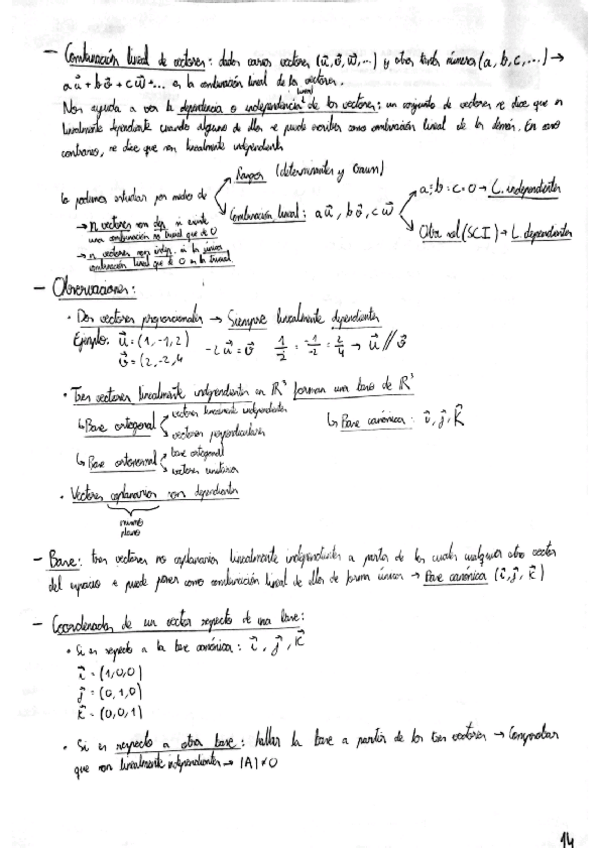 - Combinación lineal de vectores: dados varios vectores (u⃗, v⃗, w⃗,...) y otros tantos números (a, b, c,...) →
a u⃗ + b v⃗ + c w⃗ + ... es la combinación lineal de los vectores.
Nos ayuda a ver la dependencia o independencia lineal de los vectores: un conjunto de vectores se dice que es
linealmente dependiente cuando alguno de ellos se puede escribir como combinación lineal de los demás. En caso
contrario, se dice que son linealmente independientes
Lo podemos estudiar por medio de
Rangos (determinantes y Gauss)
Combinación lineal: a u⃗, b v⃗, c w⃗
a=b=c=0 → L. independientes
Otra sol (SCI) → L. dependientes
→ n vectores son dep. si existe
una combinación no trivial que dé 0
→ n vectores son indep. si la única
combinación lineal que dé 0 es la trivial
- Observaciones:
· Dos vectores proporcionales → Siempre linealmente dependientes
Ejemplo: u⃗ = (1, -1, 2)
v⃗ = (2, -2, 4
-2 u⃗ = v⃗
1/2 = -1/-2 = 2/4 → u⃗ // v⃗
· Tres vectores linealmente independientes en R³ forman una base de R³
↳ Base ortogonal
vectores linealmente independientes
vectores perpendiculares
↳ Base canónica: i⃗, j⃗, k⃗
↳ Base ortonormal
base ortogonal
vectores unitarios
· Vectores coplanarios son dependientes
mismo
plano
- Base: tres vectores no coplanarios linealmente independientes a partir de los cuales cualquier otro vector
del espacio se puede poner como combinación lineal de ellos de forma única → Base canónica (i⃗, j⃗, k⃗)
- Coordenadas de un vector respecto de una base:
· Si es respecto a la base canónica: i⃗, j⃗, k⃗
i⃗ = (1,0,0)
j⃗ = (0,1,0)
k⃗ = (0,0,1)
· Si es respecto a otra base: hallar la base a partir de los tres vectores → Comprobar
que son linealmente independientes → |A| ≠ 0
14